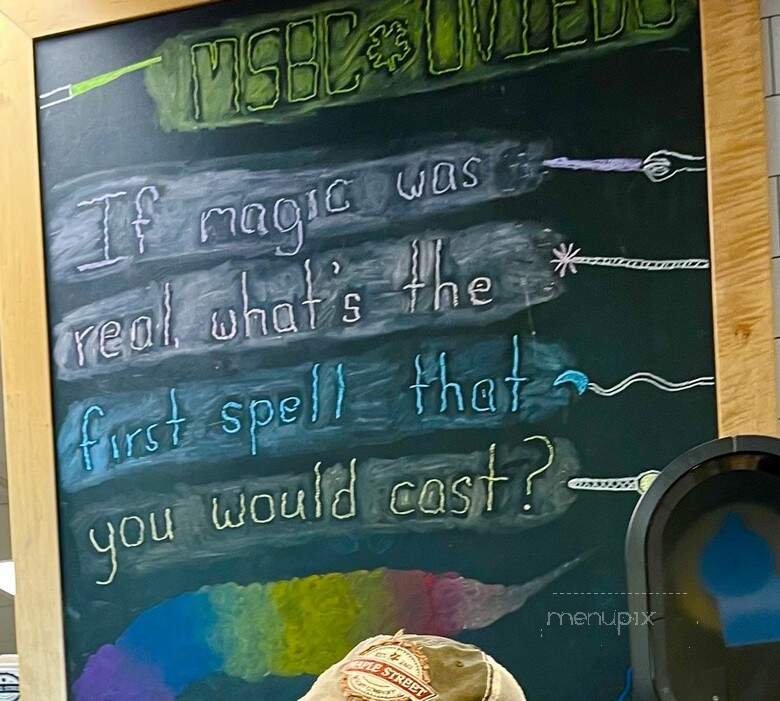 MSBC OVIEDO
If magic was
real, what's the
first spell that
you would cast?
menupix
MAPLE STREET